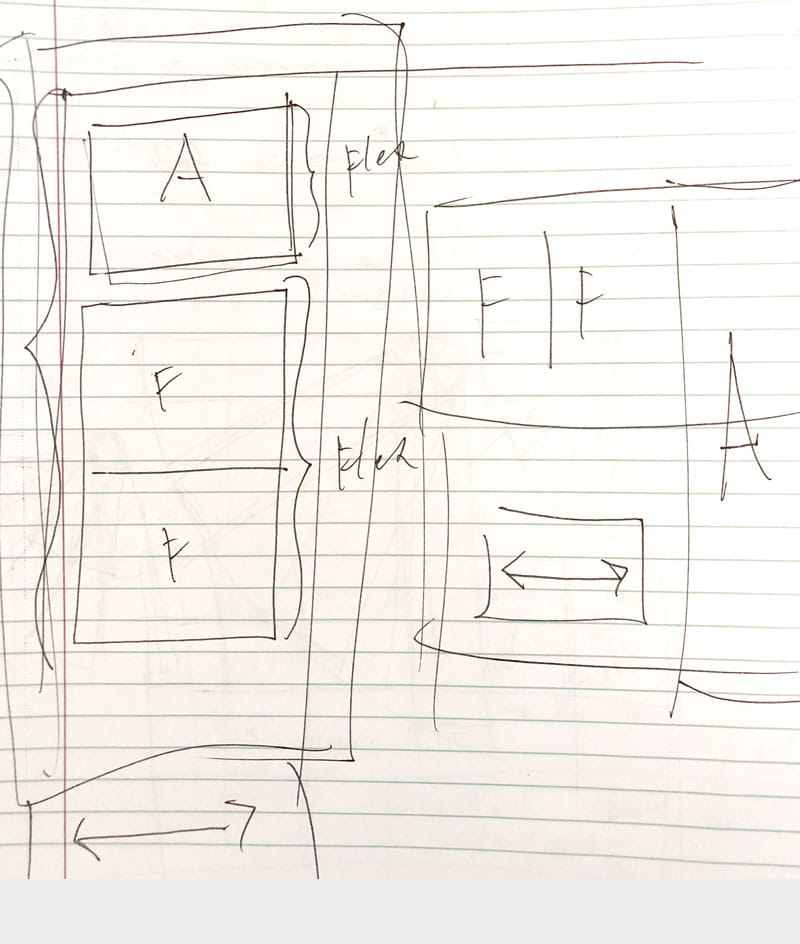 A
Flex
F
Flex
F
F | F
A